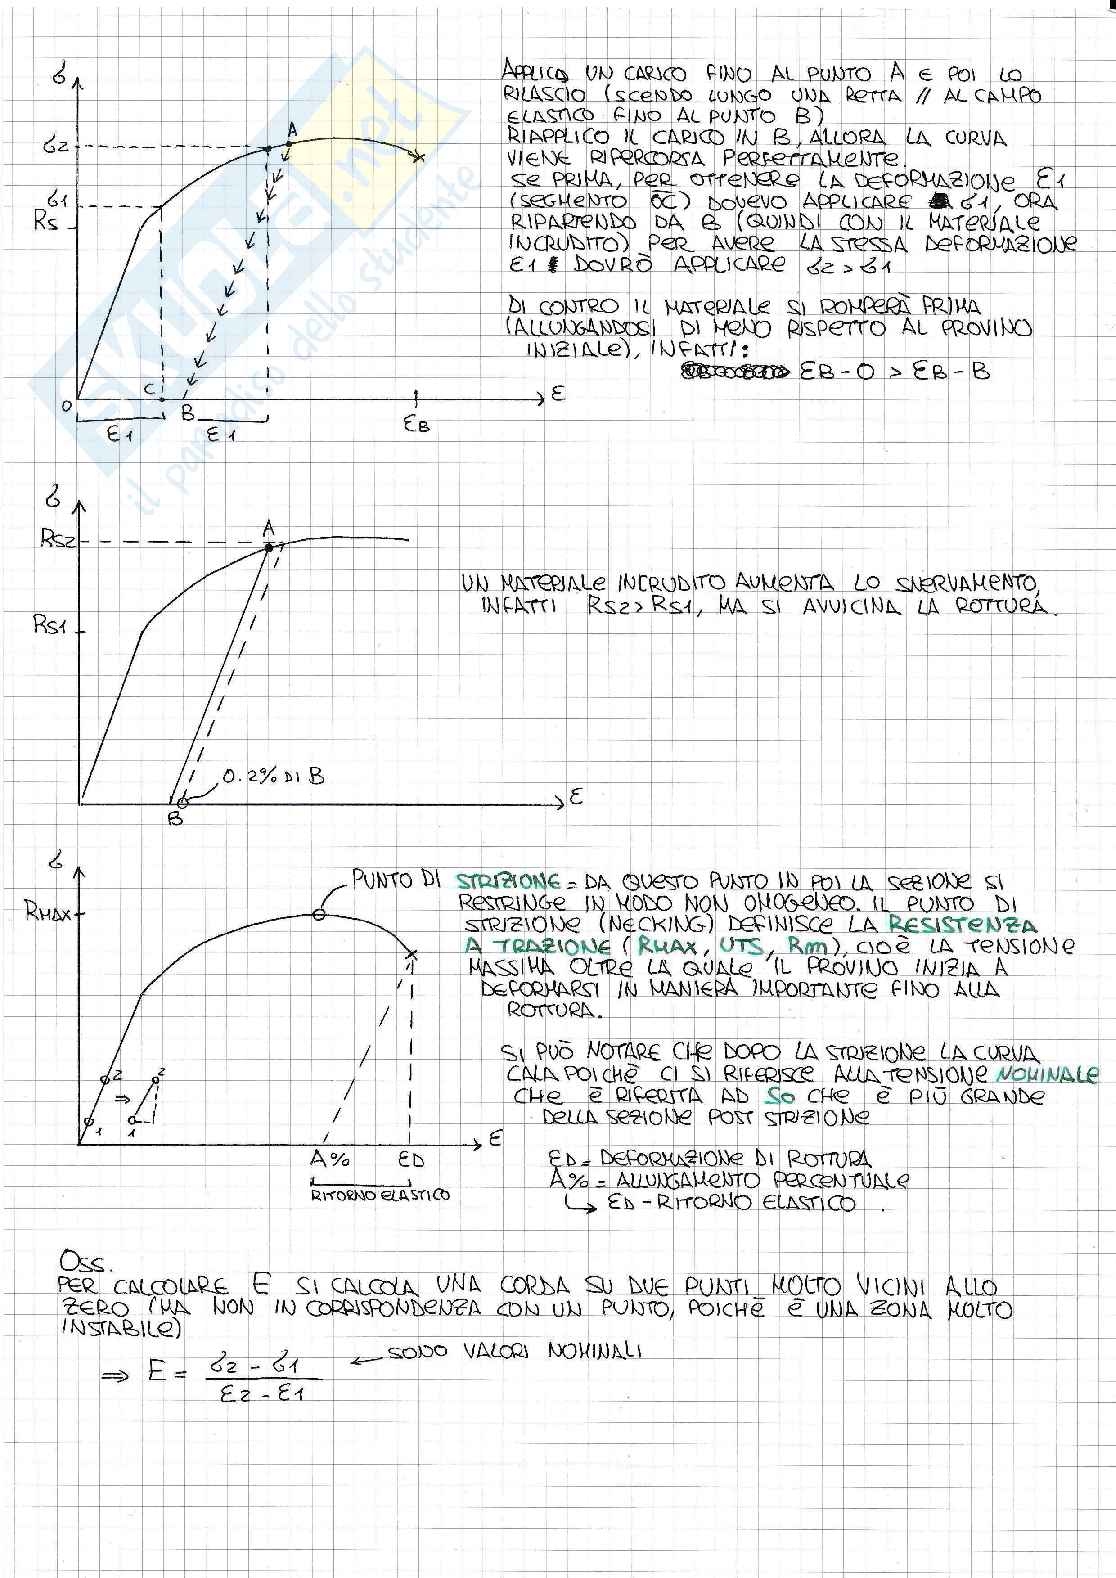 APPLICO UN CARICO FINO AL PUNTO A E POI LO
RILASCIO (SCENDO LUNGO UNA RETTA // AL CAMPO
ELASTICO FINO AL PUNTO B)
RIAPPLICO IL CARICO IN B, ALLORA LA CURVA
VIENE RIPERCORSA PERFETTAMENTE.
SE PRIMA, PER OTTENERE LA DEFORMAZIONE ε1
(SEGMENTO OC) DOVEVO APPLICARE σ1, ORA
RIPARTENDO DA B (QUINDI CON IL MATERIALE
INCRUDITO) PER AVERE LA STESSA DEFORMAZIONE
ε1 DOVRÒ APPLICARE σ2 > σ1
DI CONTRO IL MATERIALE SI ROMPERÀ PRIMA
(ALLUNGANDOSI DI MENO RISPETTO AL PROVINO
INIZIALE), INFATTI:
εB - O > εB - B
σ
σ2
σ1
RS
A
O
C
B
ε1
ε1
εB
ε
SKUOLA.net
il paradiso dello studente
σ
RS2
A
RS1
0.2% DI B
B
ε
UN MATERIALE INCRUDITO AUMENTA LO SNERVAMENTO,
INFATTI RS2 > RS1, MA SI AVVICINA LA ROTTURA.
σ
RMAX
2
1
⇒
2
1
ε
A%
εD
RITORNO ELASTICO
PUNTO DI STRIZIONE = DA QUESTO PUNTO IN POI LA SEZIONE SI
RESTRINGE IN MODO NON OMOGENEO. IL PUNTO DI
STRIZIONE (NECKING) DEFINISCE LA RESISTENZA
A TRAZIONE (RMAX, UTS, Rm), CIOÈ LA TENSIONE
MASSIMA OLTRE LA QUALE IL PROVINO INIZIA A
DEFORMARSI IN MANIERA IMPORTANTE FINO ALLA
ROTTURA.
SI PUÒ NOTARE CHE DOPO LA STRIZIONE LA CURVA
CALA POICHÈ CI SI RIFERISCE ALLA TENSIONE NOMINALE
CHE È RIFERITA AD S0 CHE È PIÙ GRANDE
DELLA SEZIONE POST STRIZIONE
εD = DEFORMAZIONE DI ROTTURA
A% = ALLUNGAMENTO PERCENTUALE
↳ εD - RITORNO ELASTICO.
OSS.
PER CALCOLARE E SI CALCOLA UNA CORDA SU DUE PUNTI MOLTO VICINI ALLO
ZERO (MA NON IN CORRISPONDENZA CON UN PUNTO, POICHÈ È UNA ZONA MOLTO
INSTABILE)
⇒ E = σ2 - σ1 / ε2 - ε1 ← SONO VALORI NOMINALI